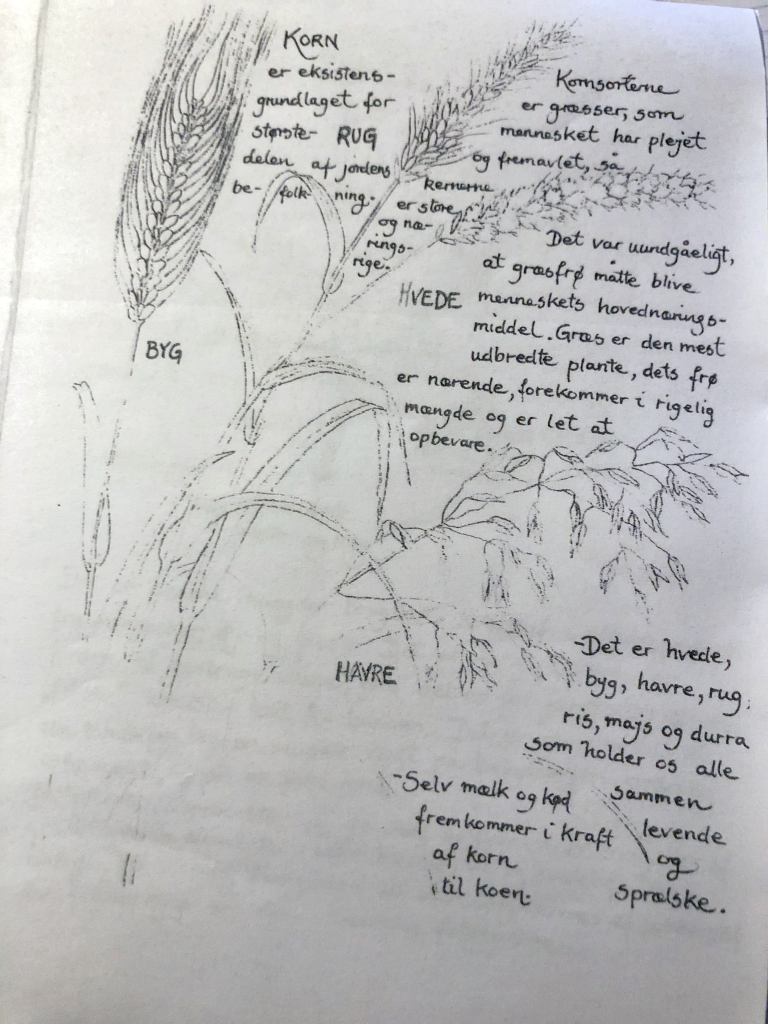 KORN
er eksistens-
grundlaget for
største-
delen af jordens
be- folk- ning.
RUG
Kornsorterne
er græsser, som
mennesket har plejet
og fremavlet, så
kernerne
er store
og næ-
rings-
rige.
Det var uundgåeligt,
at græsfrø måtte blive
menneskets hovednærings-
middel. Græs er den mest
udbredte plante, dets frø
er nærende, forekommer i rigelig
mængde og er let at
opbevare.
HVEDE
BYG
HAVRE
-Det er hvede,
byg, havre, rug,
ris, majs og durra
som holder os alle
sammen
levende
og
sprælske.
-Selv mælk og kød
fremkommer i kraft
af korn
til koen.